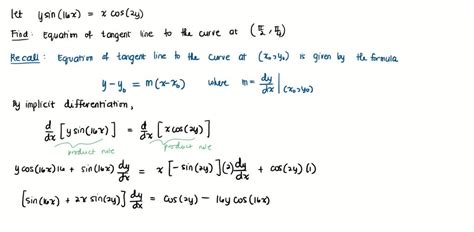 let y sin(16x) = x cos(2y)
Find: Equation of tangent line to the curve at (π/2, π/4)
Recall: Equation of tangent line to the curve at (x₀, y₀) is given by the formula
y - y₀ = m(x - x₀) where m = dy/dx |(x₀, y₀)
By implicit differentiation,
d/dx [y sin(16x)] = d/dx [x cos(2y)]
product rule product rule
y cos(16x) 16 + sin(16x) dy/dx = x[-sin(2y)](2) dy/dx + cos(2y) (1)
[sin(16x) + 2x sin(2y)] dy/dx = cos(2y) - 16y cos(16x)